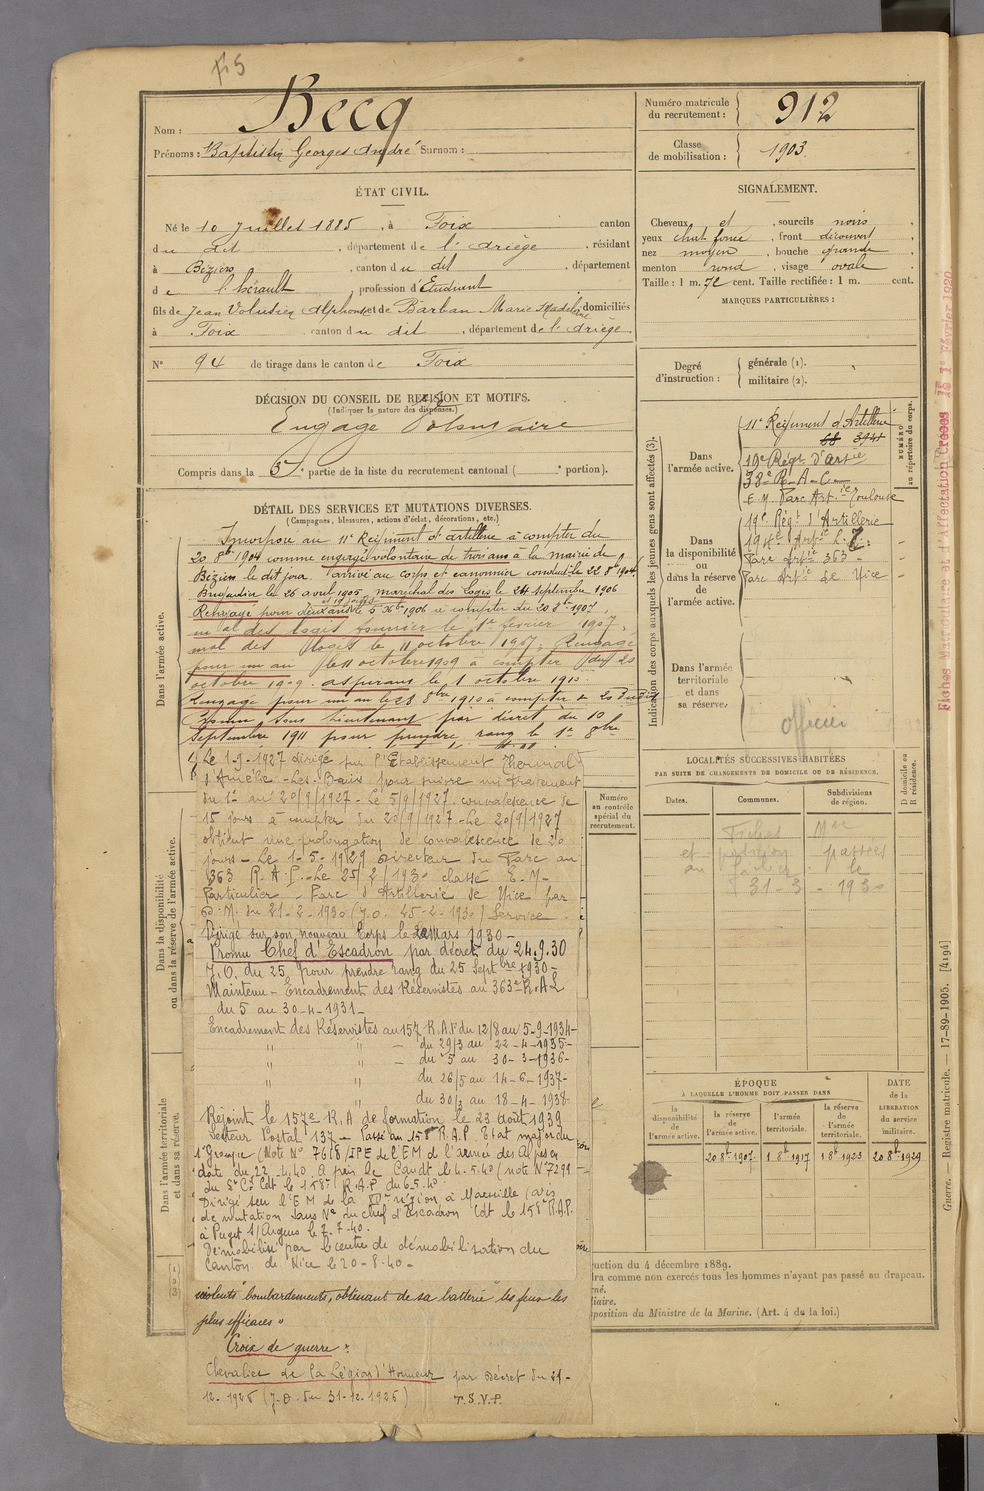 Becq
Nom :
Prénoms : Baptistin Georges André Surnom :
Numéro matricule
du recrutement :
912
Classe
de mobilisation :
1903.
ÉTAT CIVIL.
Né le 10 Juillet 1885, à Foix canton
du dit, département de l'Ariège, résidant
à Béziers, canton du dit, département
de l'hérault, profession d'Etudiant
fils de Jean Volusien Alphonse et de Barbau Marie Madeleine domiciliés
à Foix canton du dit, département de l'Ariège
N° 94 de tirage dans le canton de Foix
SIGNALEMENT.
Cheveux et, sourcils noirs
yeux chat foncé, front découvert
nez moyen, bouche grande
menton rond, visage ovale
Taille : 1 m. 72 cent. Taille rectifiée : 1 m. cent.
MARQUES PARTICULIÈRES :
Degré
d'instruction :
générale (1).
militaire (2).
DÉCISION DU CONSEIL DE REVISION ET MOTIFS.
(Indiquer la nature des dispenses.)
Engagé Volontaire
Compris dans la 5e partie de la liste du recrutement cantonal ( e portion).
DÉTAIL DES SERVICES ET MUTATIONS DIVERSES.
(Campagnes, blessures, actions d'éclat, décorations, etc.)
Dans l'armée active.
Incorporé au 11e Régiment d'artillerie à compter du
20 8bre 1904 comme engagé volontaire de trois ans à la mairie de
Béziers le dit jour arrivé au corps et canonnier conduct. le 22 8bre 1904.
Brigadier le 26 avril 1905, maréchal des Logis le 24 septembre 1906
Rengagé pour deux ans le 5 Xbre 1906 à compter du 20 8bre 1907,
mal des logis fourrier le 1er février 1907,
mal des logis le 11 octobre 1907, Rengagé
pour un an le 11 octobre 1909 à compter du 20
octobre 1909. aspirant le 1 octobre 1910.
Rengagé pour un an le 28 8bre 1910 à compter du 20
Promu Sous lieutenant par décret du 10
septembre 1911 pour prendre rang le 1er 8bre
Le 1-9-1927 dirigé sur l'Etablissement Thermal
d'Amélie-les-Bains pour suivre un traitement
du 1er au 20/9/1927 - Le 5/9/1927 convalescence de
15 jours à compter du 20/9/1927 - Le 20/9/1927
obtient une prolongation de convalescence de 20
jours - Le 1-5-1929 Directeur du Parc au
363 R.A.P. - Le 25/2/1930 classé E.M.
Particulier - Parc d'Artillerie de Nice par
D.M. du 21-2-1930 (J.O. 25-2-1930) Service.
Dirigé sur son nouveau Corps le Mars 1930 -
Promu Chef d'Escadron par décret du 24.9.30
J.O. du 25 pour prendre rang du 25 Septbre 1930 -
Maintenu - Encadrement des Réservistes au 363e R.A.L
du 5 au 30-4-1931 -
Encadrement des Réservistes au 157 R.A.P du 12/8 au 5-9-1934 -
" " - du 29/3 au 22-4-1935 -
" " - du 5 au 30-3-1936 -
" " du 26/5 au 14-6-1937 -
" " du 30/3 au 18-4-1938
Rejoint le 157e R.A de formation le 23 août 1939
Secteur Postal 137 - Passé au 158e R.A.P. Etat major du
1er Groupe (Note N° 7618/IPE de l'EM de l'armée des Alpes en
date du 22-4-40 A pris le Cendt le 4.5.40 (note N° 7299
du St Cl Cdt le 158e R.A.P. du 6.5.40
Dirigé sur l'EM de la région à Marseille (avis
de mutation sans N° du chef d'Escadron Cdt le 158e R.A.P.
à Puget s/Argens le 7-7-40.
Démobilisé par le centre de démobilisation du
Canton de Nice le 20-8-40 -
violents bombardements, obtenant de sa batterie les feux les
plus efficaces "
Croix de guerre :
Chevalier de la Légion d'Honneur par Décret du 21-
12-1926 (J.O. du 31-12-1926) T.S.V.P.
Dans la disponibilité
ou dans la réserve de l'armée active.
Dans l'armée territoriale
et dans sa réserve.
Indication des corps auxquels les jeunes gens sont affectés (3).
NUMÉRO
au répertoire du corps.
Dans
l'armée active.
11e Régiment d'Artillerie
68 394
19e Régt d'Artie
38e R-A-C-
E.M. Parc Art. ie Toulouse
Dans
la disponibilité
ou
dans la réserve
de
l'armée active.
19e Régt d'Artillerie
Parc d'Artie 363 -
Parc Artie de Nice
Dans l'armée
territoriale
et dans
sa réserve.
officier
LOCALITÉS SUCCESSIVES HABITÉES
PAR SUITE DE CHANGEMENTS DE DOMICILE OU DE RÉSIDENCE.
Numéro
au contrôle
spécial du
recrutement.
Dates.
Communes.
Subdivisions
de région.
D domicile ou
R résidence.
Fiches Mle
et position passées
au fichier le
31-3-1930
ÉPOQUE
À LAQUELLE L'HOMME DOIT PASSER DANS
la
disponibilité
de
l'armée active.
la réserve
de
l'armée active.
l'armée
territoriale.
la réserve
de
l'armée
territoriale.
DATE
de la
LIBÉRATION
du service
militaire.
20 8bre 1907
1 8bre 1917
1 8bre 1923
20 8bre 1929
ruction du 4 décembre 1889.
dra comme non exercés tous les hommes n'ayant pas passé au drapeau.
rné.
liaire.
sposition du Ministre de la Marine. (Art. 4 de la loi.)
(1)
(2)
(3)
Fiches Matriculaire et d'Affectation Créées le 1er Février 1920
Guerre. — Registre matricule. — 17-89-1905. [4194]